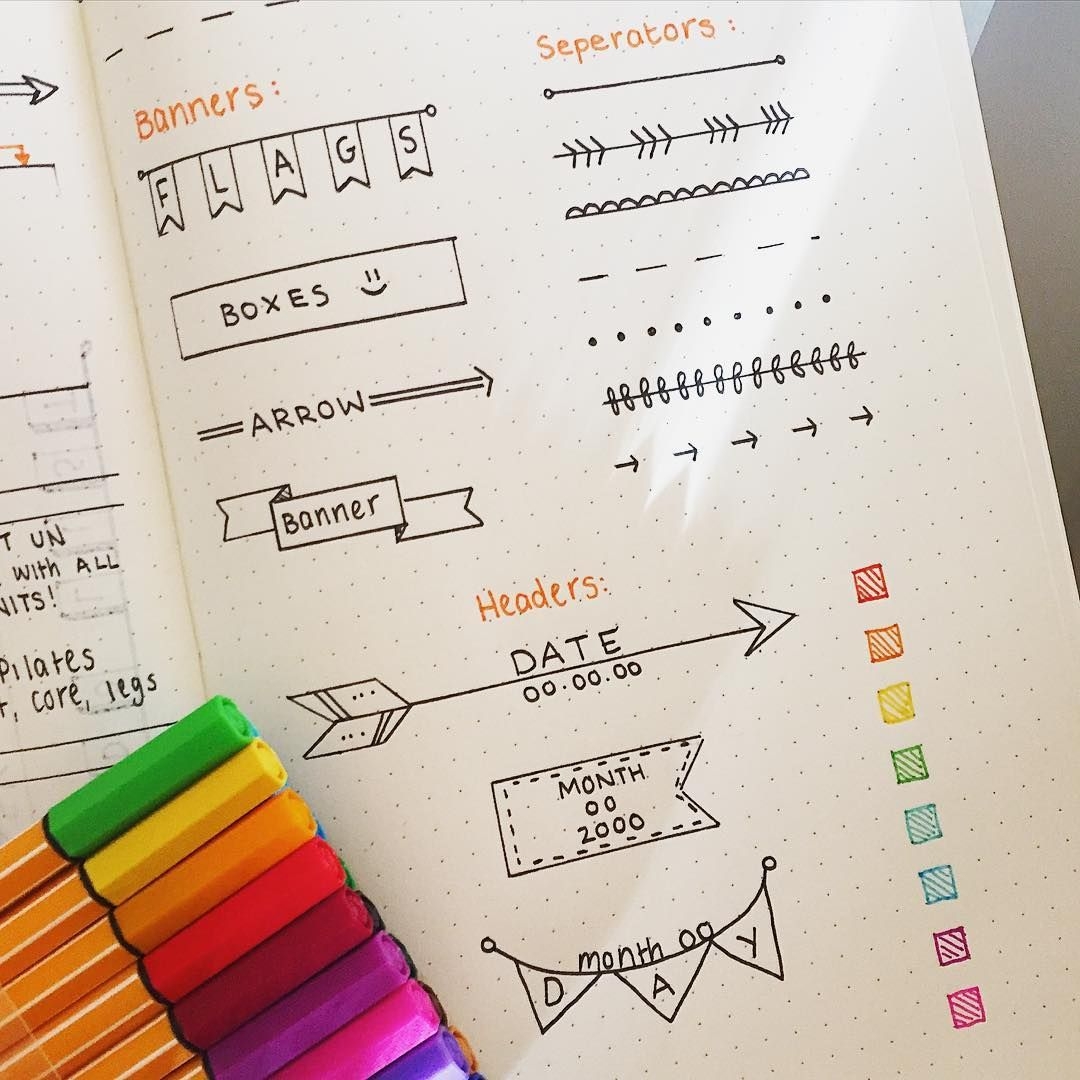 Banners:
F L A G S
BOXES
ARROW
Banner
Seperators:
Headers:
DATE
00.00.00
MONTH
00
2000
month 00
D A Y
UN
with ALL
Pilates
core, legs